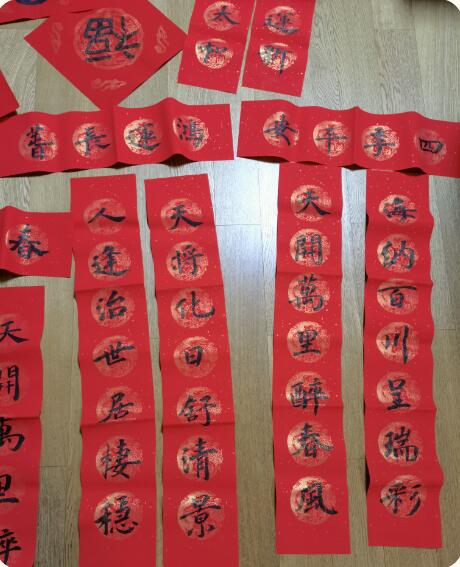 福
運開
太和
四季平安
鴻運長
海納百川呈瑞彩
天開萬里醉春風
天將化日舒清景
人逢治世居棲穩
春
天開萬里醉